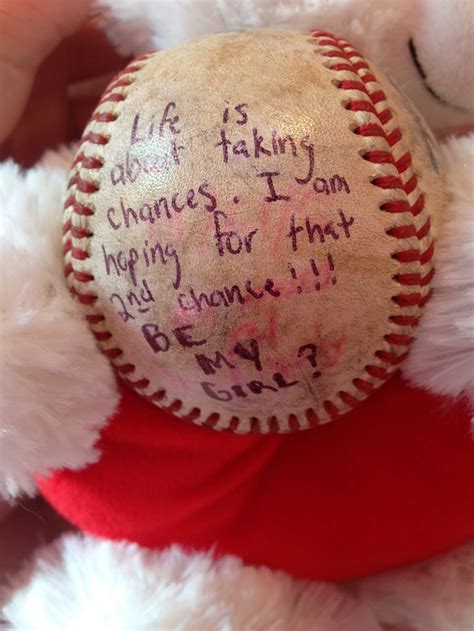 Life is
about taking
chances. I am
hoping for that
2nd chance!!!
BE
MY
GIRL?